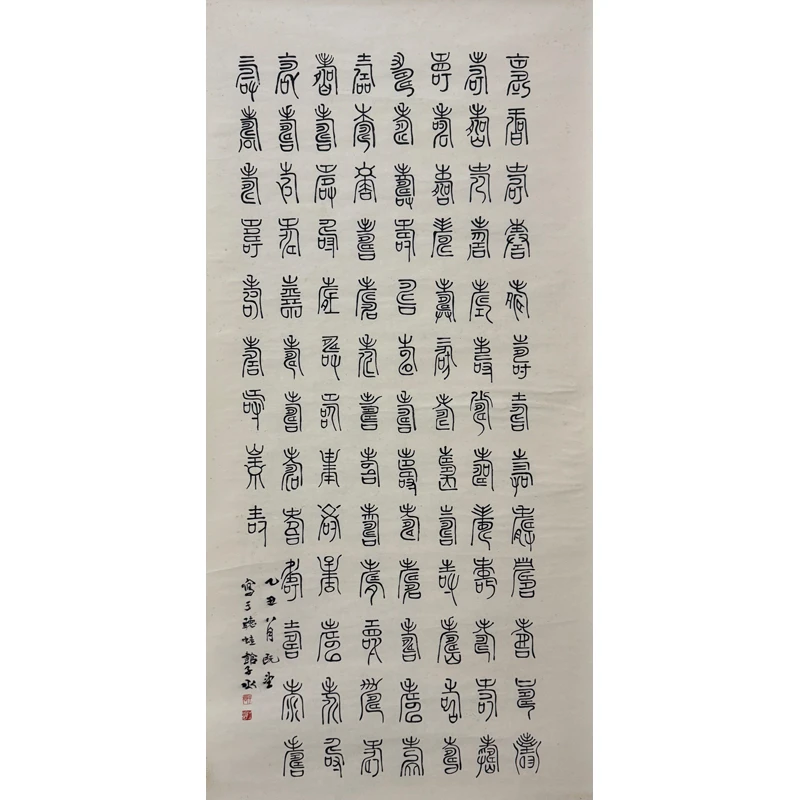 壽壽壽壽壽壽壽壽壽壽壽壽壽
壽壽壽壽壽壽壽壽壽壽壽壽壽
壽壽壽壽壽壽壽壽壽壽壽壽壽
壽壽壽壽壽壽壽壽壽壽壽壽壽
壽壽壽壽壽壽壽壽壽壽壽壽壽
壽壽壽壽壽壽壽壽壽壽壽壽壽
壽壽壽壽壽壽壽壽壽壽壽壽壽
壽壽壽壽壽壽壽壽壽
乙丑八月既望
寫于聽蛙